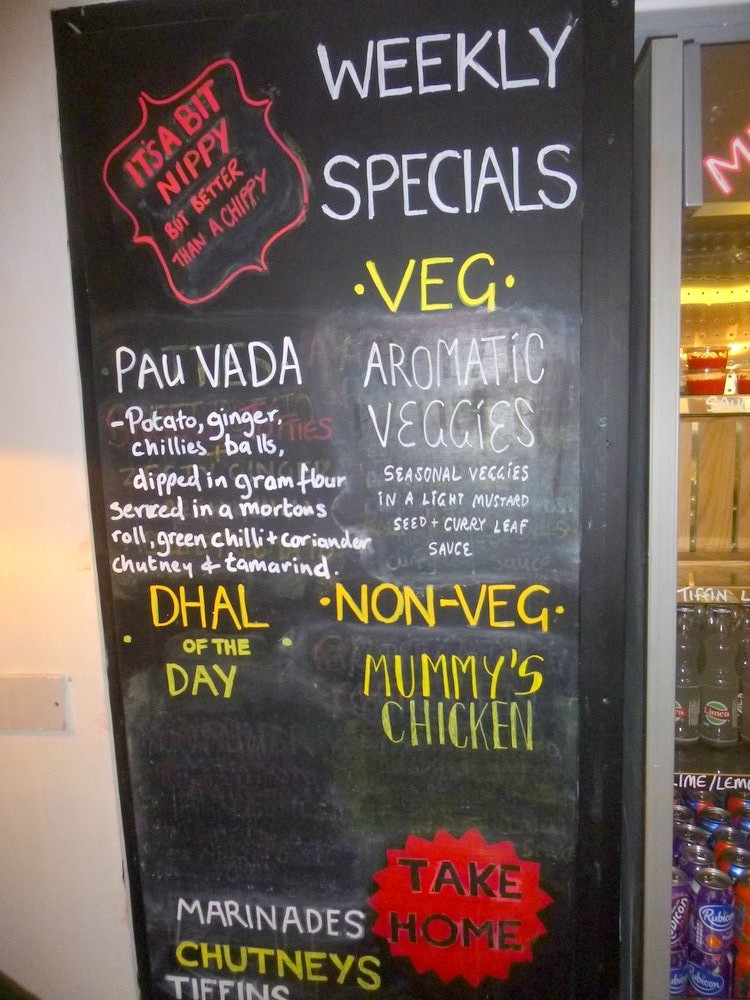 WEEKLY
SPECIALS
IT'S A BIT
NIPPY
BUT BETTER
THAN A CHIPPY
•VEG•
PAU VADA
-Potato, ginger,
chillies balls,
dipped in gram flour
served in a mortons
roll, green chilli + coriander
chutney & tamarind.
AROMATIC
VEGGIES
SEASONAL VEGGIES
IN A LIGHT MUSTARD
SEED + CURRY LEAF
SAUCE
DHAL
• OF THE •
DAY
•NON-VEG•
MUMMY'S
CHICKEN
TAKE
HOME
MARINADES
CHUTNEYS
TIFFINS
TIFFIN L
Limca
LIME/LEMO
Rubicon
Rubicon
Rubicon